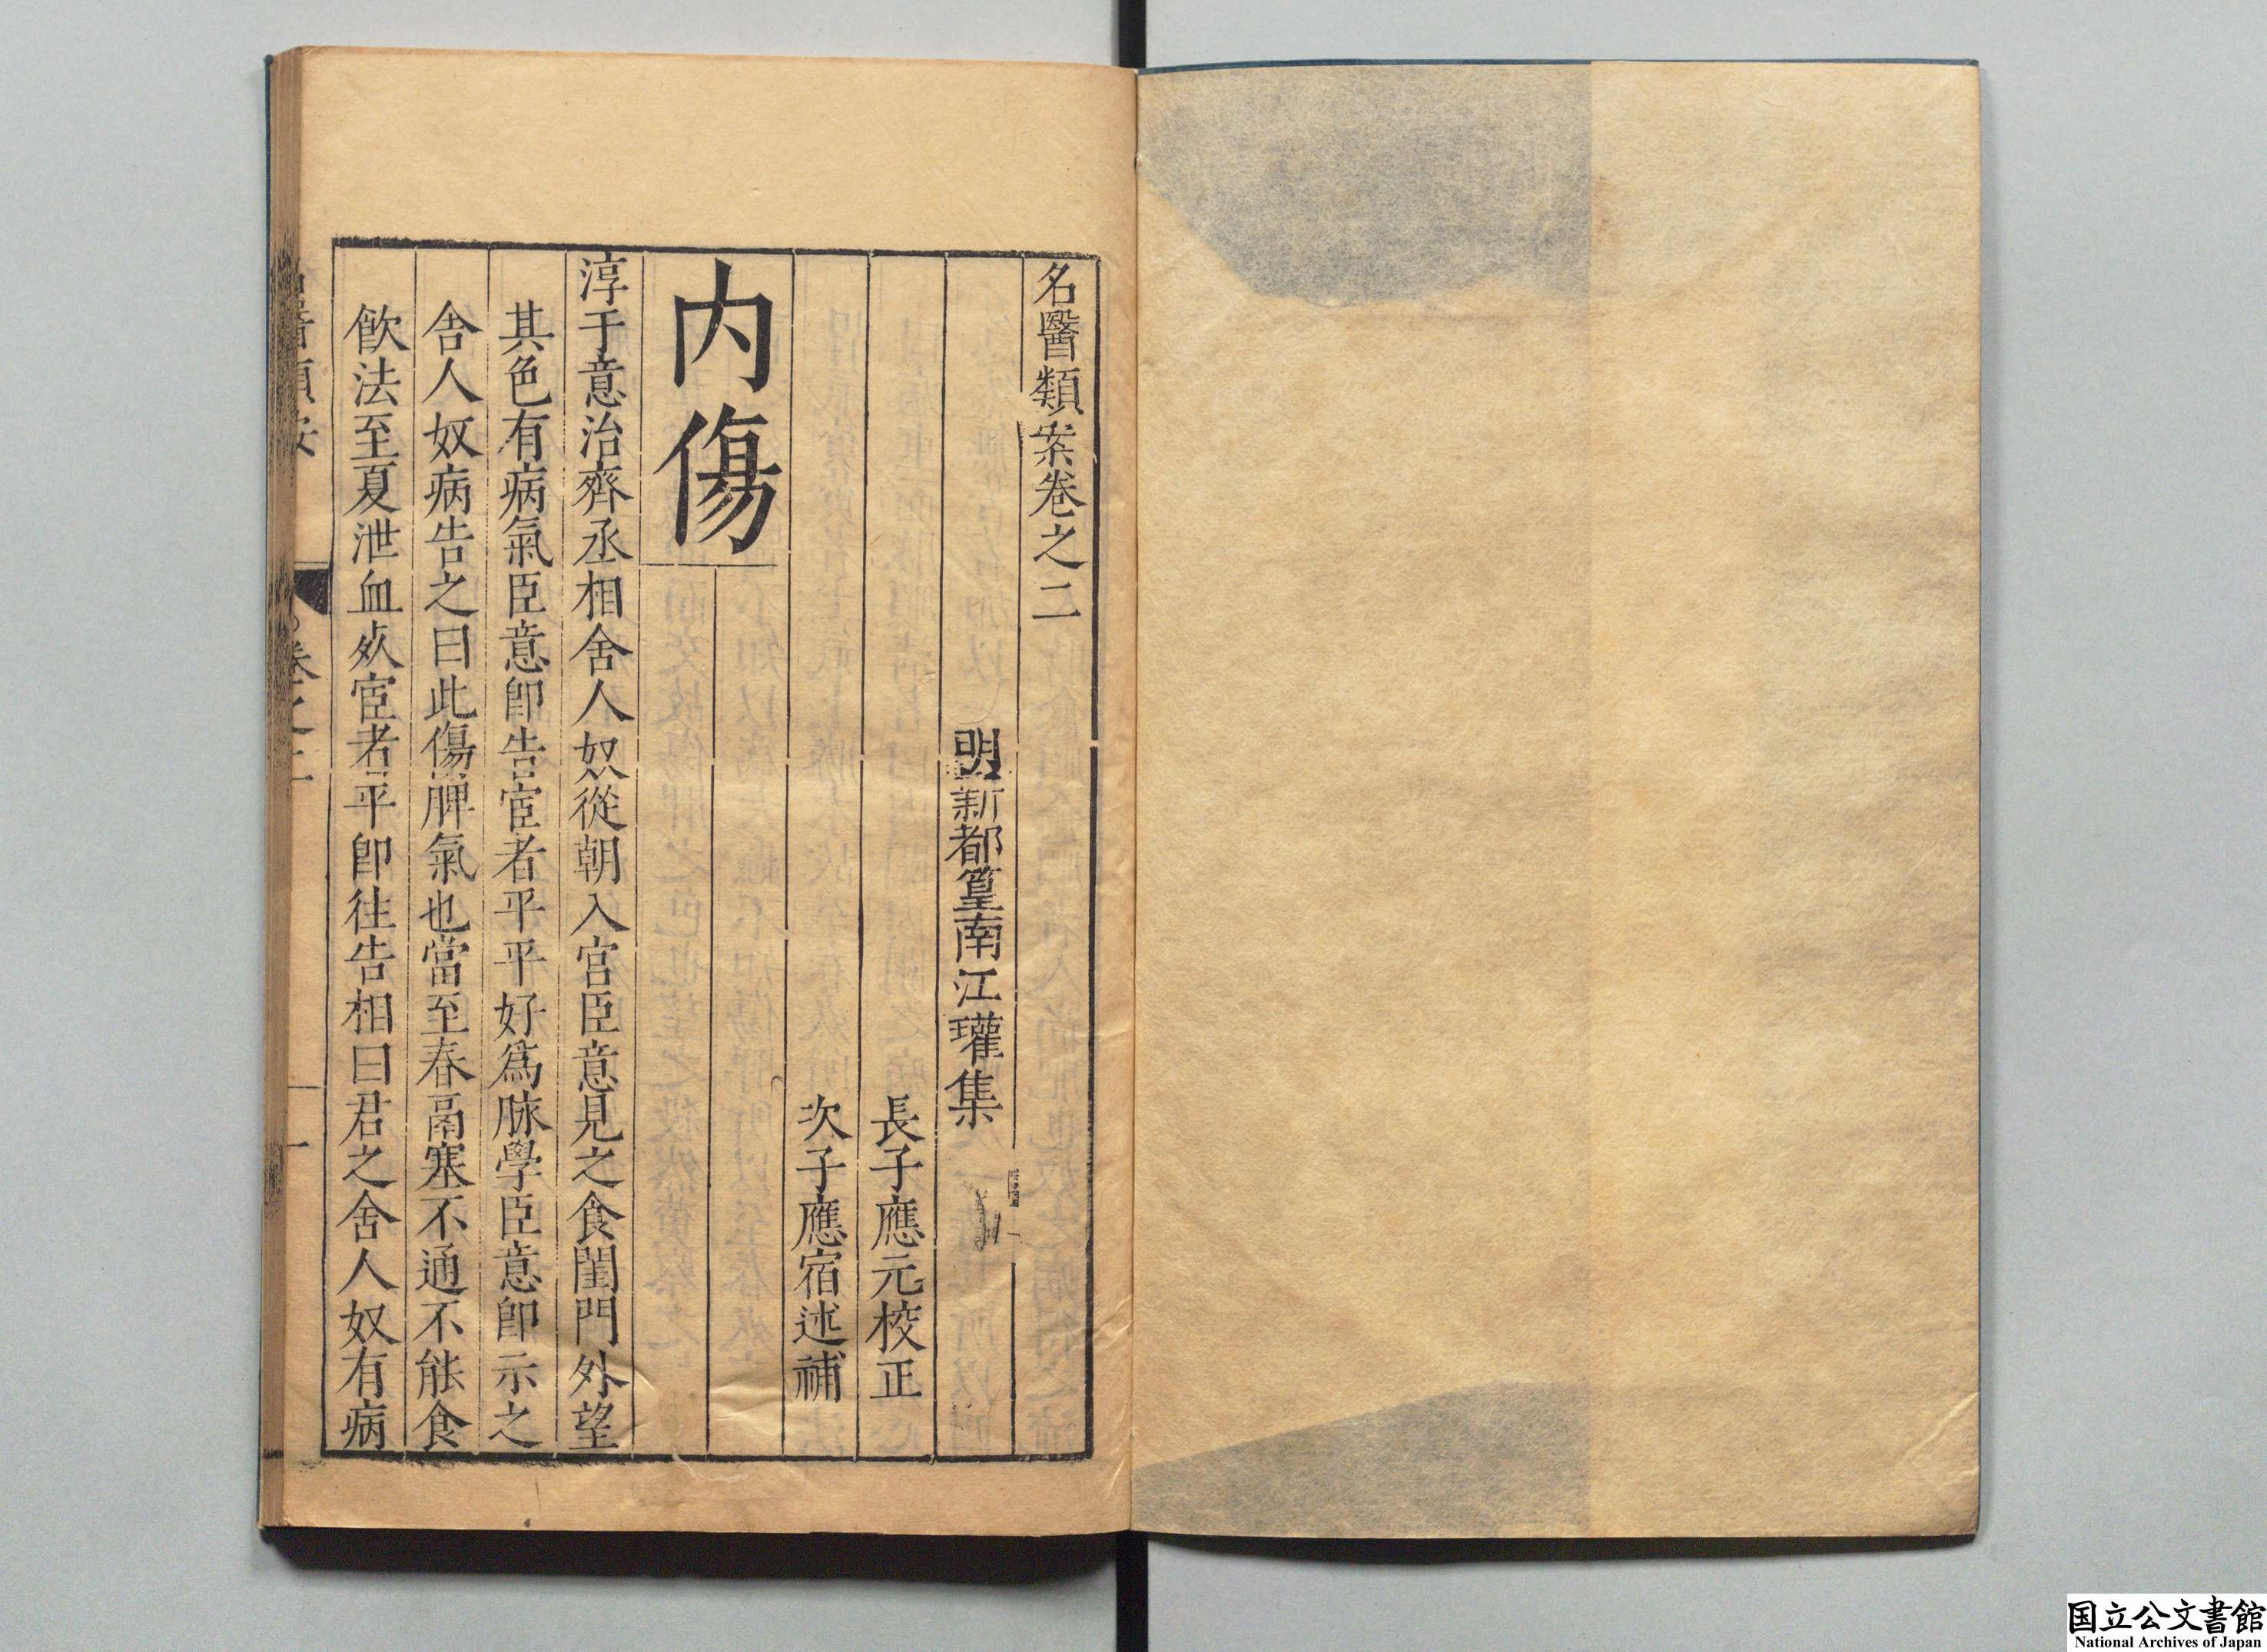 名醫類案卷之二
明新都篁南江瓘集
長子應元校正
次子應宿述補
内傷
淳于意治齊丞相舍人奴從朝入宮臣意見之食閨門外望
其色有病氣臣意即告宦者平平好爲脉學臣意即示之
舍人奴病告之曰此傷脾氣也當至春鬲塞不通不能食
飲法至夏泄血死宦者平即往告相曰君之舍人奴有病
卷之二
一
国立公文書館
National Archives of Japan